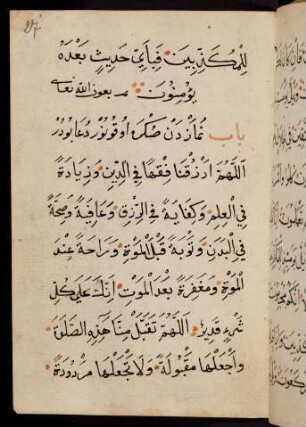 لِلْمُكَذِّبِينَ فَبِأَيِّ حَدِيثٍ بَعْدَهُ
يُؤْمِنُونَ تمت بعون الله تعالى
باب نمازدن صكره اوقونور دعا بودر
اَللّٰهُمَّ ارْزُقْنَا فِقْهًا فِي الدِّينِ وَزِيَادَةً
فِي الْعِلْمِ وَكِفَايَةً فِي الرِّزْقِ وَعَافِيَةً وَصِحَّةً
فِي الْبَدَنِ وَتَوْبَةً قَبْلَ الْمَوْتِ وَرَاحَةً عِنْدَ
الْمَوْتِ وَمَغْفِرَةً بَعْدَ الْمَوْتِ اِنَّكَ عَلٰى كُلِّ
شَيْءٍ قَدِيرٌ اَللّٰهُمَّ تَقَبَّلْ مِنَّا هٰذِهِ الصَّلٰوةَ
وَاجْعَلْهَا مَقْبُولَةً وَلَا تَجْعَلْهَا مَرْدُودَةً